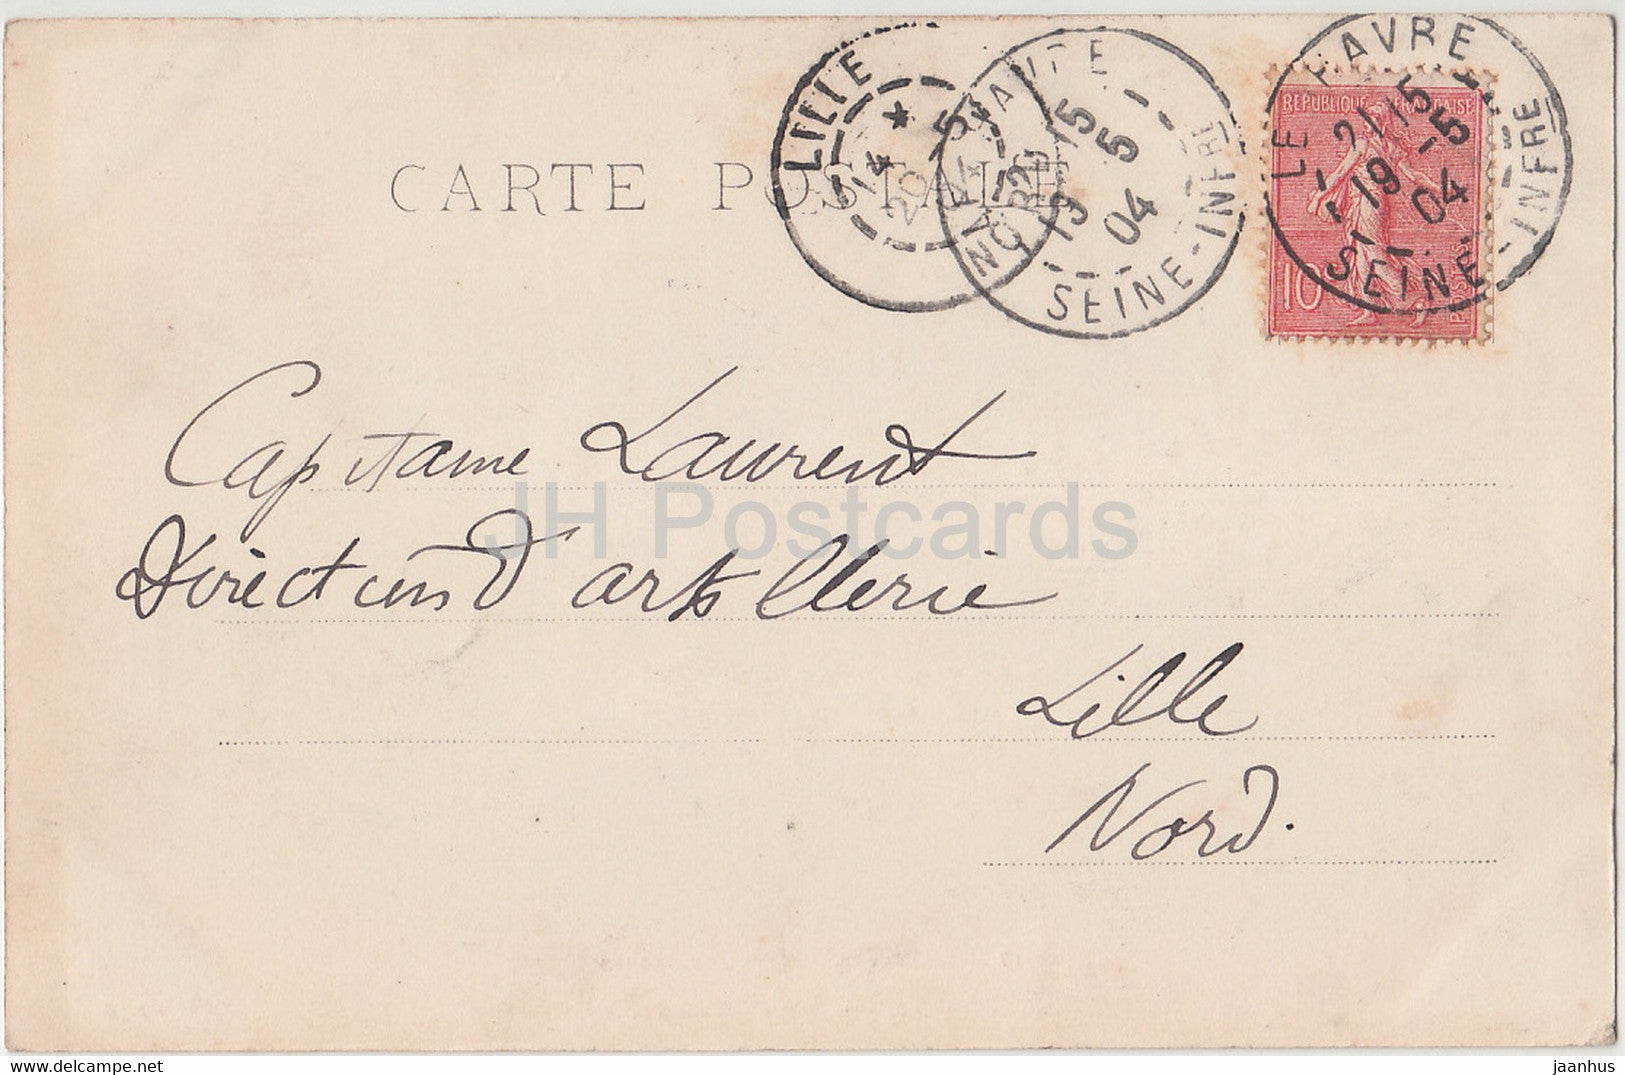 CARTE POSTALE
LILLE
14 * 20 5 04
NORD
LE HAVRE
21 15
19 5
04
SEINE-INFRE
LE HAVRE
21 15
19 -5
04
SEINE-INFRE
REPUBLIQUE FRANÇAISE
10
POSTES
Capitaine Laurent
Direction d'artillerie
Lille
Nord.
JH Postcards
jaanhus